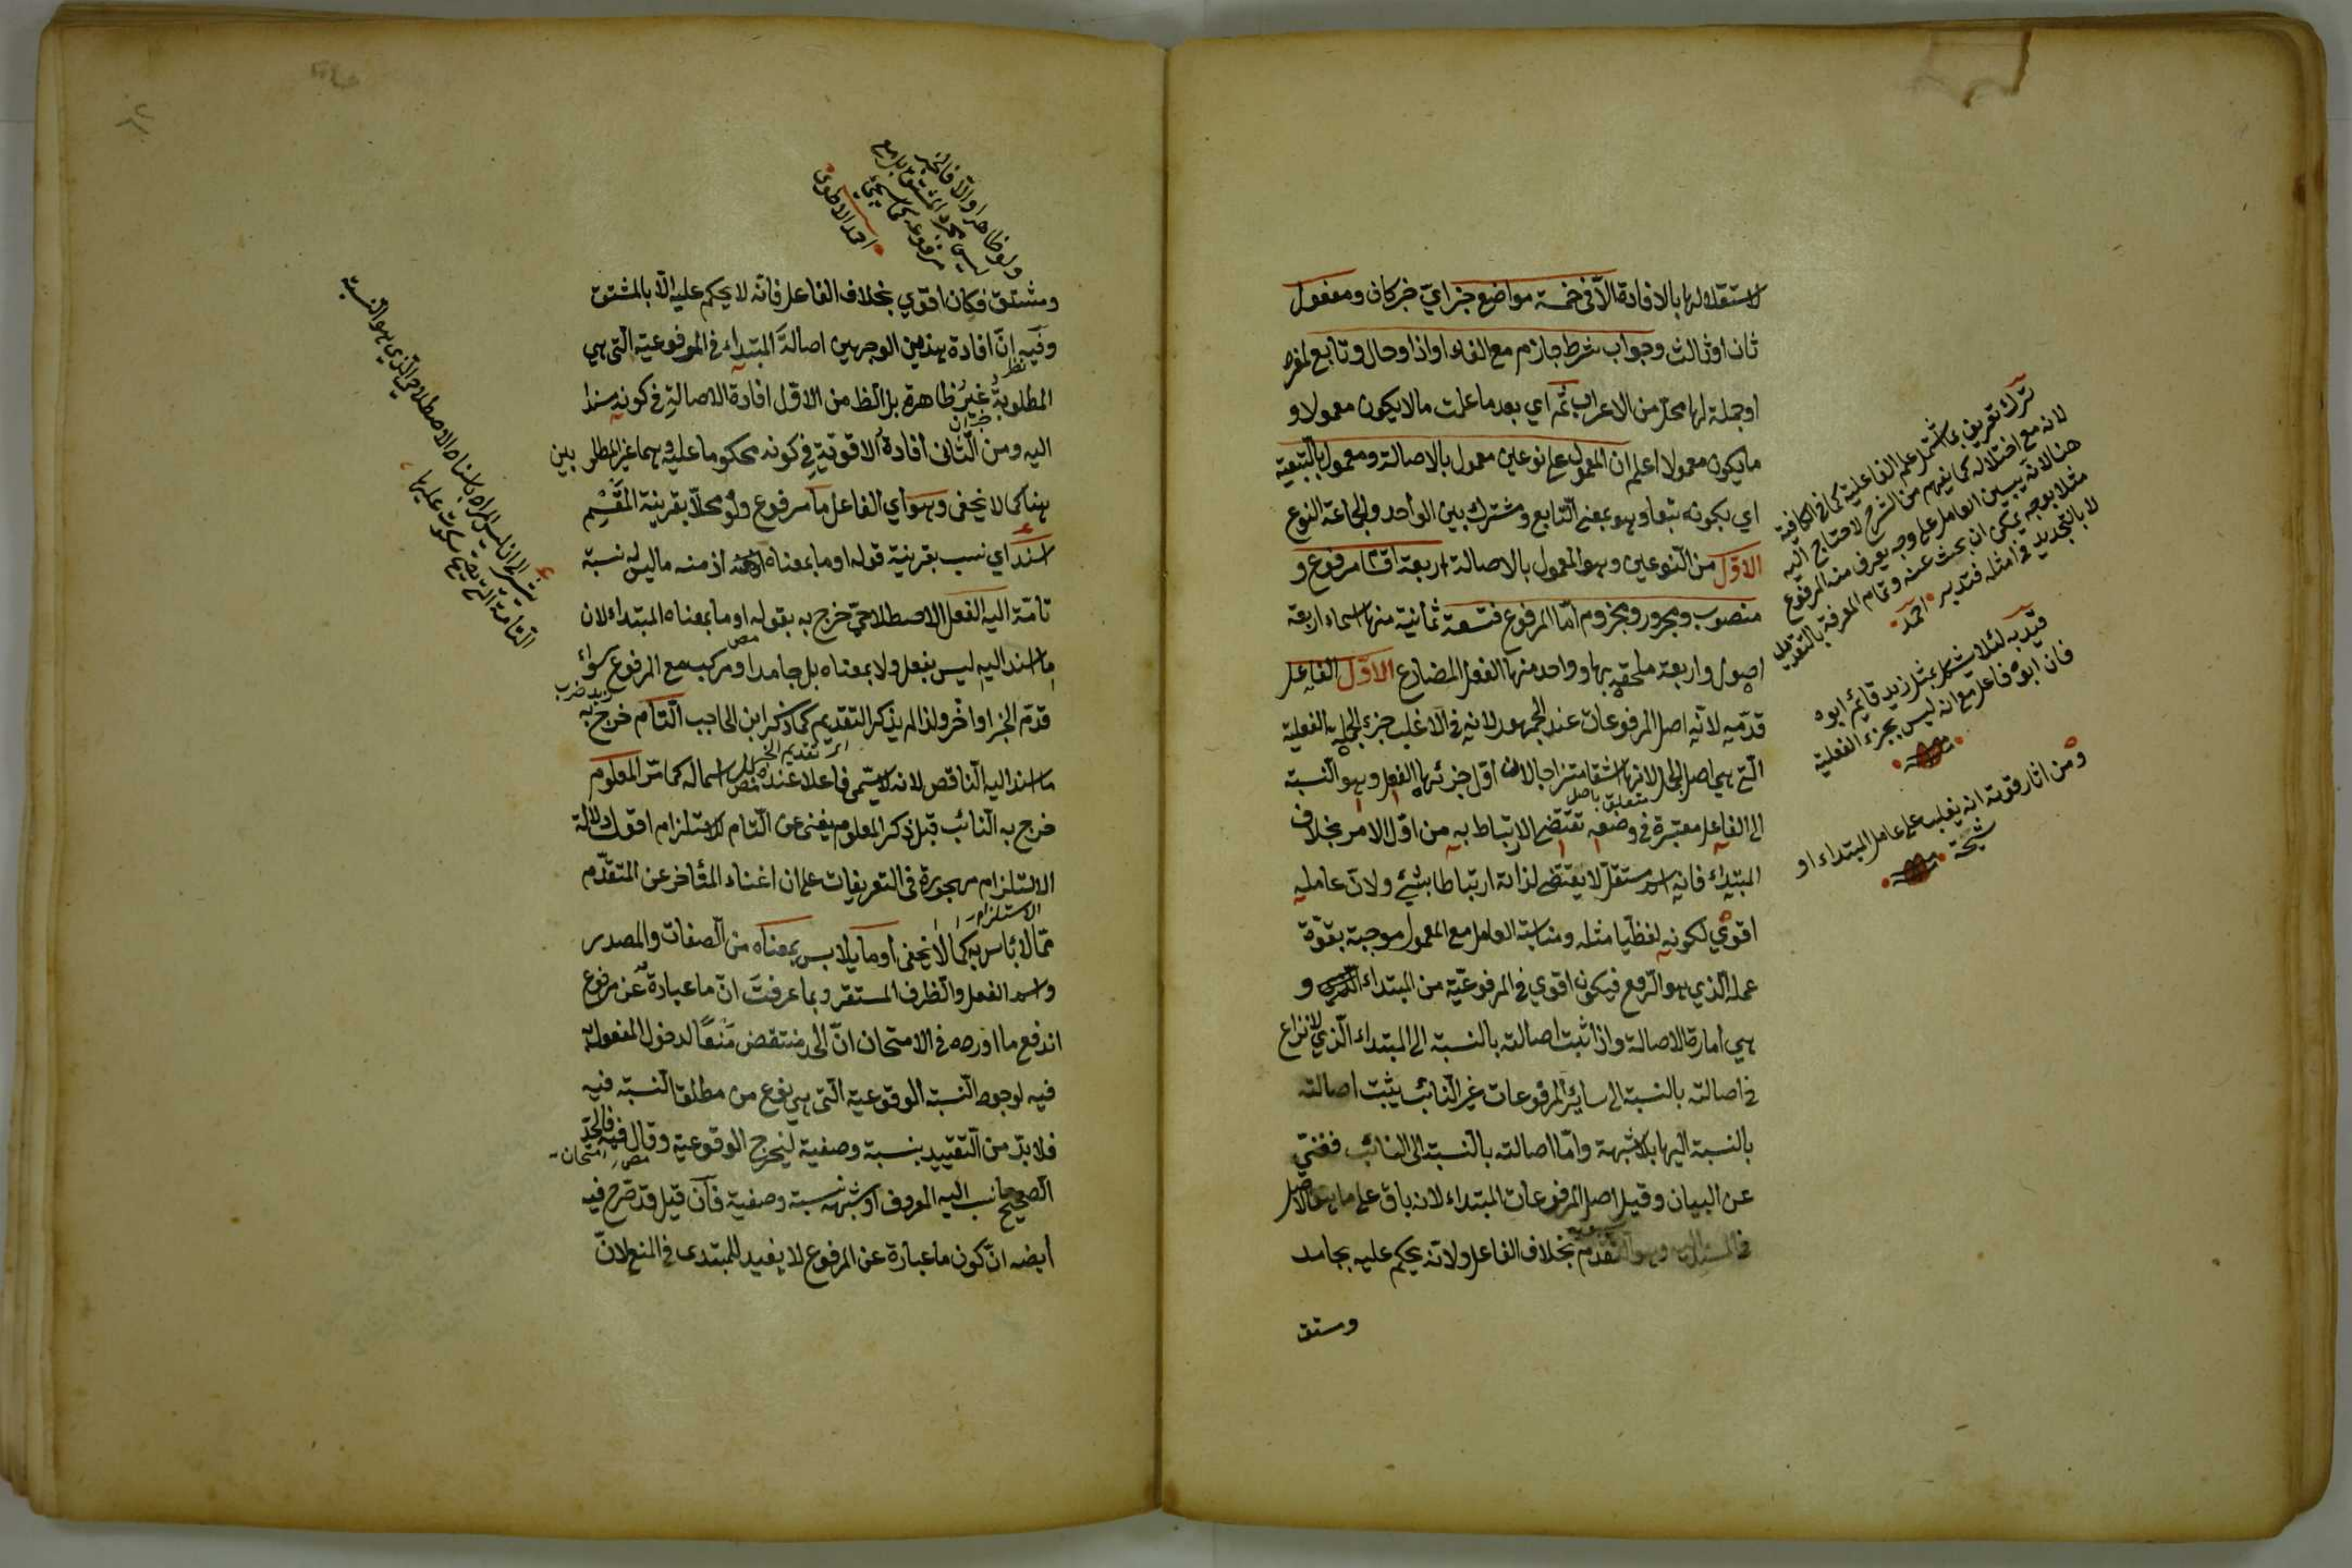 لاستقلالها بالافادة الّا في خمسة مواضع خبر ايّ خبر كان ومفعول
ثان او ثالث وجواب شرط جازم مع الفاء او اذا وحال وتابع لمفرد
او جملة لها محلّ من الاعراب ثمّه اي بعد ما علمت ما لا يكون معمولا و
ما يكون معمولا اعلم ان المعمول على نوعين معمول بالاصالة ومعمول بالتبعية
اي بكونه تبعا وهو بمعنى التابع ومشترك بين الواحد والجماعة النوع
الاوّل من النوعين وهو المعمول بالاصالة اربعة اقسام مرفوع و
منصوب ومجرور ومجزوم امّا المرفوع فتسعة ثمانية منها اسماء اربعة
اصول واربعة ملحقة بها وواحد منها الفعل المضارع الاوّل الفاعل
قدّمه لانّه اصل المرفوعات عند الجمهور لانه في الاغلب جزء الجملة الفعلية
الّتي هي اصل الجمل لانها اشدّ امتزاجا لان اوّل جزئها الفعل وهو النسبة
متعلق باصل
الى الفاعل معتبرة في وضعه تقتضي الارتباط به من اوّل الامر بخلاف
المبتداء فانه اسم مستقلّ لا يقتضي لذاته ارتباطا بشئ ولانّ عامله
اقوي لكونه لفظيا مثله ومناسبة العامل مع المعمول موجبة بقوّة
عمله الّذي هو الرفع فيكون اقوي في المرفوعيّة من المبتداء و
هي امارة الاصالة واذا ثبت اصالته بالنسبة الى المبتداء الّذي لا نزاع
في اصالته بالنسبة الى سائر المرفوعات غير النائب يثبت اصالته
بالنسبة اليها بلا شبهة وامّا اصالته بالنسبة الى النائب فغنيّ
عن البيان وقيل اصل المرفوعات المبتداء لانه باق على ما هو الاصل
في المسند اليه وهو التقدم بخلاف الفاعل ولانّه يحكم عليه بجامد
ومشتق
ترك تعريفه بما اشتمل على علم الفاعلية كما في الكافية
لانه مع اختلاله كما يفهم من الشرح لا احتياج اليه
هنا لانه يبين العامل على وجه يعرف منه المرفوع
مثلا بوجه يمكن ان يبحث عنه وتمام المعرفة بالتقديم
لا بالتحديد في امثله فتدبر احمد
قيّد به لئلا يشكل بمثل زيد قائم ابوه
فان ابوه فاعل مع انه ليس بجزء الفعلية
ومن اثار قوته انه يغلب على عامل المبتداء او
ومشتق فكان اقوي بخلاف الفاعل فانّه لا يحكم عليه الّا بالمشتق
وفيه نظر انّ افادة هذين الوجهين اصالة المبتداء في المرفوعية الّتي هي
المطلوبة غير ظاهرة بل الظ من الاوّل افادة الاصالة في كونه مسندا
اليه ومن الثاني افادة الاقوية في كونه محكوما عليه وهما غير المطلوبين
هنا كما لا يخفى وهو اي الفاعل ما مرفوع ولو محلّا بقرينة المقسم
اسند اي نسب بقرينة قوله او ما بمعناه اذ منه ما ليس له نسبة
تامّة اليه الفعل الاصطلاحيّ خرج به بقوله او ما بمعناه المبتداء لان
ما اسند اليه ليس بفعل ولا بمعناه بل جامد او مركب مع المرفوع سواء
قدّم الخبر او اخّر ولذا لم يذكر التقديم كما ذكر ابن الحاجب التّام خرج به
ما اسند اليه الناقص لانه لا يسمّى فاعلا عنده بل اسما له كما مرّ المعلوم
خرج به النائب قيل ذكر المعلوم يغني عن التّام لاستلزام اقول دلالة
الالتزام مهجورة في التعريفات على ان اغناء المؤخر عن المتقدّم
ممّا لا بأس به كما لا يخفى او ما يلابس بمعناه من الصفات والمصدر
واسم الفعل والظرف المستقر وبما عرفت انّ ما عبارة عن مرفوع
اندفع ما اورده في الامتحان انّ الحد منتقض منعا لدخول المفعول
فيه لوجود النسبة الوقوعية الّتي هي نوع من مطلق النسبة فيه
فلا بدّ من التقييد بنسبة وصفية ليخرج الوقوعية وقال فيه فالحدّ
الصحيح ما نسب اليه المعروف او شبهه نسبة وصفية فان قيل قد صرّح فيه
ايضه انّ كون ما عبارة عن المرفوع لا يفيد للمبتدى في المنع لانّ
ولو ظاهرا والّا فالخبر
ليس مجرد المشتق بل مع
مرفوعه كما سيجئ
احمد الاطهوي
التامة الّتي يصح سكوت عليها